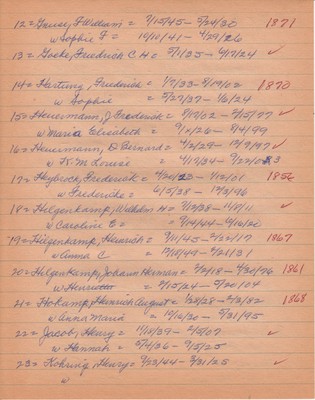 12 = Gause, F William = 9/15/45 - 5/24/30 1871
w Sophie F = 10/10/41 - 4/29/26
13 = Goeke, Friedrich C H = 5/1/35 - 4/17/24 ✓
14 = Hartung, Frederick = 1/7/33 - 8/19/02 1870
w Sophie = 5/27/37 - 1/6/24
15 = Heuermann, J Frederick = 9/10/02 - 2/15/77 ✓
w Maria Elisabeth = - 9/4/99
16 = Heuermann, Bernard = 4/2/29 - 17/9/97 ✓
w K. M Louise = 4/19/34 - 9/22/03
17 = Heybrock, Frederick = - 1/2/01 1856
w Fredericke = 6/5/38 - 12/3/96
18 = Helgenkamp, H = 9/10/28 - 11/8/11 ✓
w Caroline E = 9/14/44 - 6/16/26
19 = Hilgenkamp, Heinrich = 9/11/45 - 2/22/17 1867
w Anna C = 12/10/49 - 2/21/31
20 = Helgenkamp, Johann Herman = 2/2/18 - 9/30/76 1861
w Henrietta = 2/15/24 - 5/20/04
21 = Hokamp, Heinrich August = 2/28/28 - 2/3/82 1868
w Anna Maria = 10/16/30 - 5/31/95
22 = Jacob, Henry = 11/18/39 - 2/5/07 ✓
w Hannah = 5/4/36 - 9/5/25
23 = Kohring, Henry = 9/23/44 - 3/31/25 ✓
w